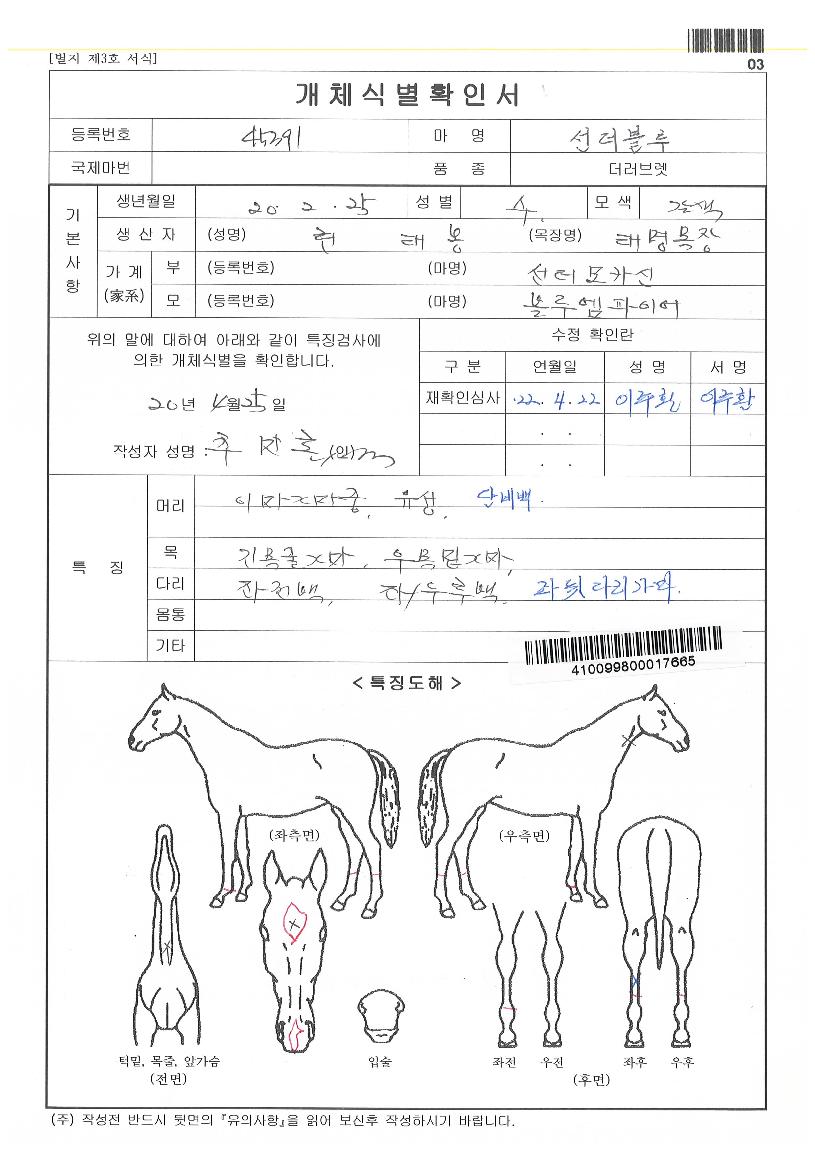 [별지 제3호 서식]
03
개체식별확인서
등록번호 45391 마 명 선더블루
국제마번 품 종 더러브렛
기본사항
생년월일 20. 2. 25 성 별 수. 모 색 갈색
생 산 자 (성명) 태봉 (목장명) 태명목장
가 계 (家系) 부 (등록번호) (마명) 선더모카신
모 (등록번호) (마명) 블루엠파이어
위의 말에 대하여 아래와 같이 특징검사에
의한 개체식별을 확인합니다.
20년 4월 25일
작성자 성명 : (인)
수정 확인란
구 분 연월일 성 명 서 명
재확인심사 '22. 4. 22
. .
. .
특 징
머리 이마가마중, 유성, 단비백.
목 우용밑가마,
다리 좌전백, 좌/우후백,
몸통
기타
410099800017665
< 특징도해 >
(좌측면) (우측면)
턱밑, 목줄, 앞가슴 입술 좌전 우전 좌후 우후
(전면) (후면)
(주) 작성전 반드시 뒷면의 『유의사항』을 읽어 보신후 작성하시기 바랍니다.